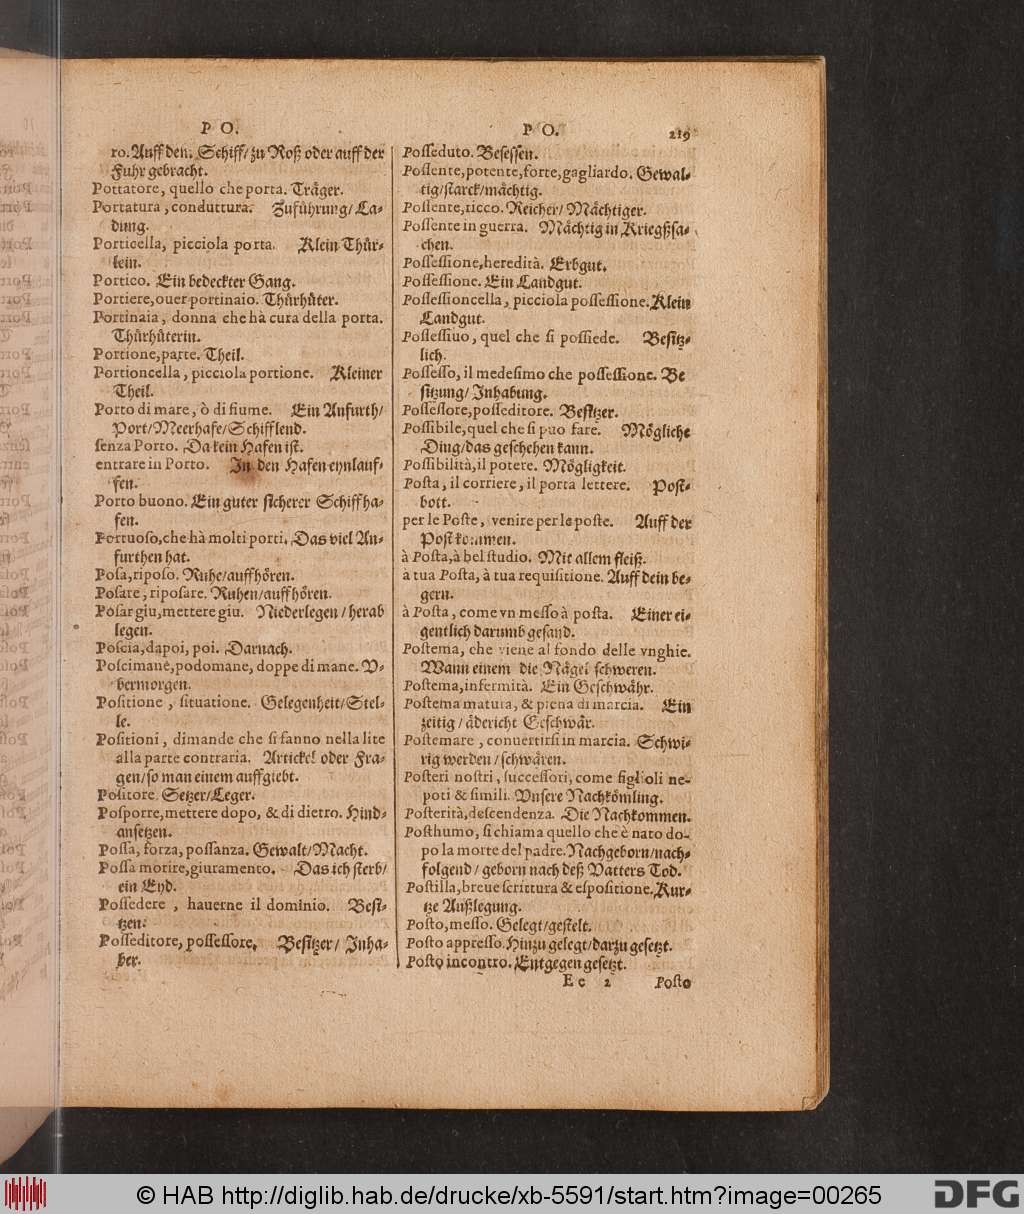 P O.
ro. Auff den Schiff/ zu Roß oder auff der
Fuhr gebracht.
Pottatore, quello che porta. Träger.
Portatura, conduttura. Zuführung/ La-
dung.
Porticella, picciola porta. Klein Thür-
lein.
Portico. Ein bedeckter Gang.
Portiere, ouer portinaio. Thürhüter.
Portinaia, donna che hà cura della porta.
Thürhüterin.
Portione, parte. Theil.
Portioncella, picciola portione. Kleiner
Theil.
Porto di mare, ò di fiume. Ein Anfurth/
Port/ Meerhafe/ Schifflend.
senza Porto. Da kein Hafen ist.
entrare in Porto. In den Hafen eynlauf-
fen.
Porto buono. Ein guter sicherer Schiff ha-
fen.
Portuoso, che hà molti porti. Das viel An-
furthen hat.
Posa, riposo. Ruhe/ auffhören.
Posare, riposare. Ruhen/ auffhören.
Posar giu, mettere giu. Niederlegen/ herab
legen.
Poscia, dapoi, poi. Darnach.
Poscimane, podomane, doppe di mane. V-
bermorgen.
Positione, situatione. Gelegenheit/ Stel-
le.
Positioni, dimande che si fanno nella lite
alla parte contraria. Artickel oder Fra-
gen/ so man einem auffgiebt.
Positore. Setzer/ Leger.
Posporre, mettere dopo, & di dietro. Hind-
ansetzen.
Possa, forza, possanza. Gewalt/ Macht.
Possa morire, giuramento. Das ich sterb/
ein Eyd.
Possedere, hauerne il dominio. Besi-
tzen.
Posseditore, possessore. Besitzer/ Inha-
ber.
P O. 219
Posseduto. Besessen.
Possente, potente, forte, gagliardo. Gewal-
tig/ starck/ mächtig.
Possente, ricco. Reicher/ Mächtiger.
Possente in guerra. Mächtig in Kriegßsa-
chen.
Possessione, heredità. Erbgut.
Possessione. Ein Landgut.
Possessioncella, picciola possessione. Klein
Landgut.
Possessiuo, quel che si possiede. Besitz-
lich.
Possesso, il medesimo che possessione. Be
sitzung/ Inhabung.
Possessore, posseditore. Besitzer.
Possibile, quel che si puo fare. Mögliche
Ding/ das geschehen kann.
Possibilità, il potere. Mögligkeit.
Posta, il corriere, il porta lettere. Post-
bott.
per le Poste, venire per le poste. Auff der
Post kommen.
à Posta, à bel studio. Mit allem fleiß.
à tua Posta, à tua requisitione. Auff dein be-
gern.
à Posta, come vn messo à posta. Einer ei-
gentlich darumb gesand.
Postema, che viene al fondo delle vnghie.
Wann einem die Nägel schweren.
Postema, infermità. Ein Geschwähr.
Postema matura, & piena di marcia. Ein
zeitig/ ädericht Geschwär.
Postemare, conuertirsi in marcia. Schwi-
rig werden/ schwären.
Posteri nostri, successori, come figlioli ne-
poti & simili. Vnsere Nachkömling.
Posterità, descendenza. Die Nachkommen.
Posthumo, si chiama quello che è nato do-
po la morte del padre. Nachgeborn/ nach-
folgend/ geborn nach deß Vatters Tod.
Postilla, breue scrittura & espositione. Kur-
tze Außlegung.
Posto, messo. Gelegt/ gestelt.
Posto appresso. Hinzu gelegt/ darzu gesetzt.
Posto incontro. Entgegen gesetzt.
Ee 2 Posto
© HAB http://diglib.hab.de/drucke/xb-5591/start.htm?image=00265
DFG